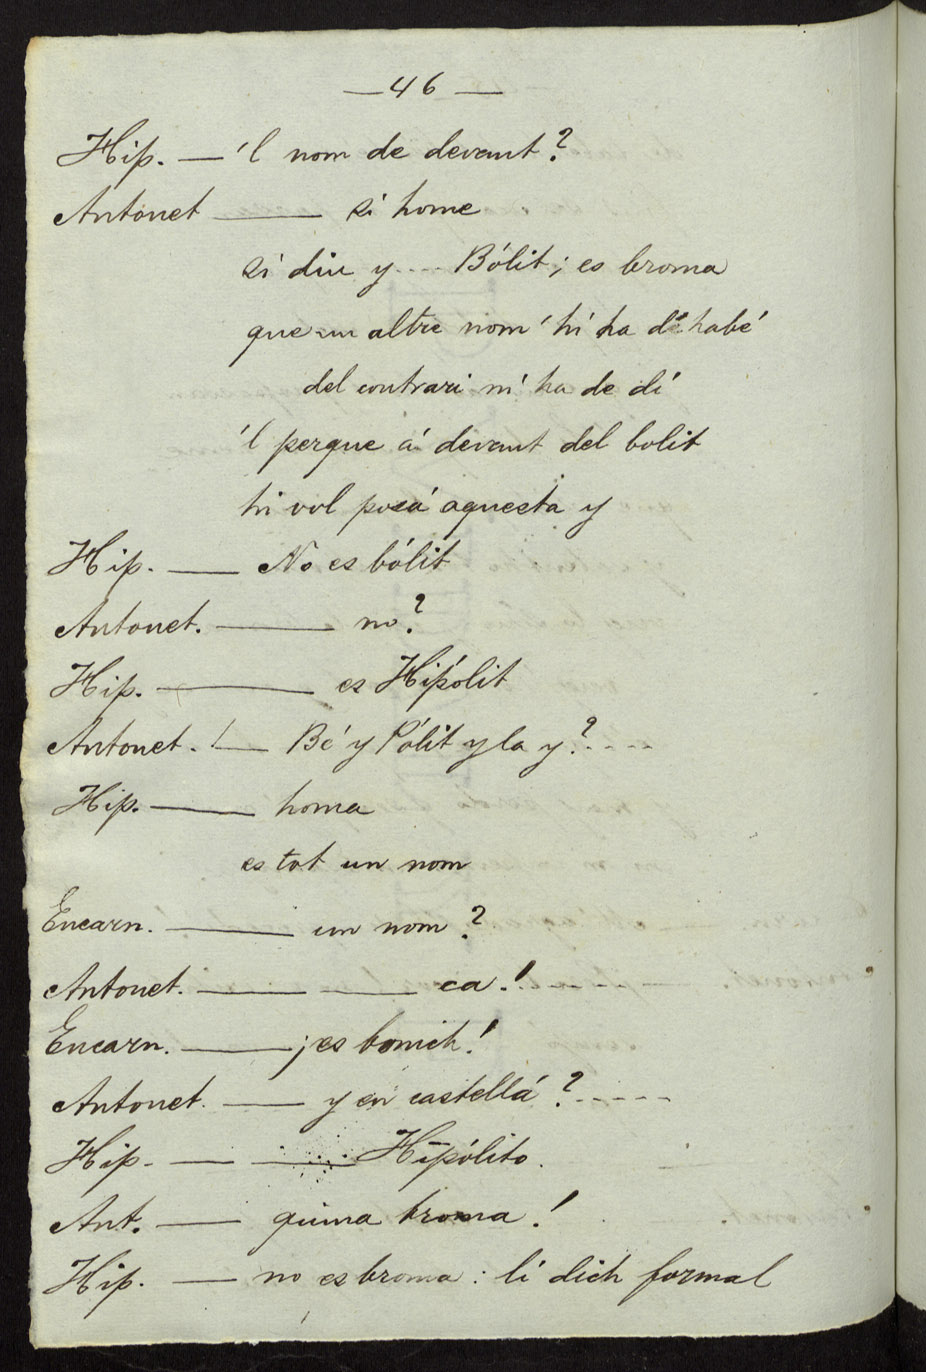 —46—
Hip. — 'l nom de devant?
Antonet — si home
si diu y.... Bólit; es broma
que un altre nom 'hi ha de habé
del contrari m' ha de dí
'l perque á devant del bolit
hi vol posá aquesta y
Hip. — No es bólit
Antonet. — no?
Hip. — es Hipólit
Antonet. — Bé y Pólit y la y?....
Hip. — homa
es tot un nom
Encarn. — un nom?
Antonet. — — ca!
Encarn. — ¡es bonich!
Antonet. — y en castellá?.....
Hip. — — Hipólito.
Ant. — quina broma!
Hip. — no es broma: li dich formal